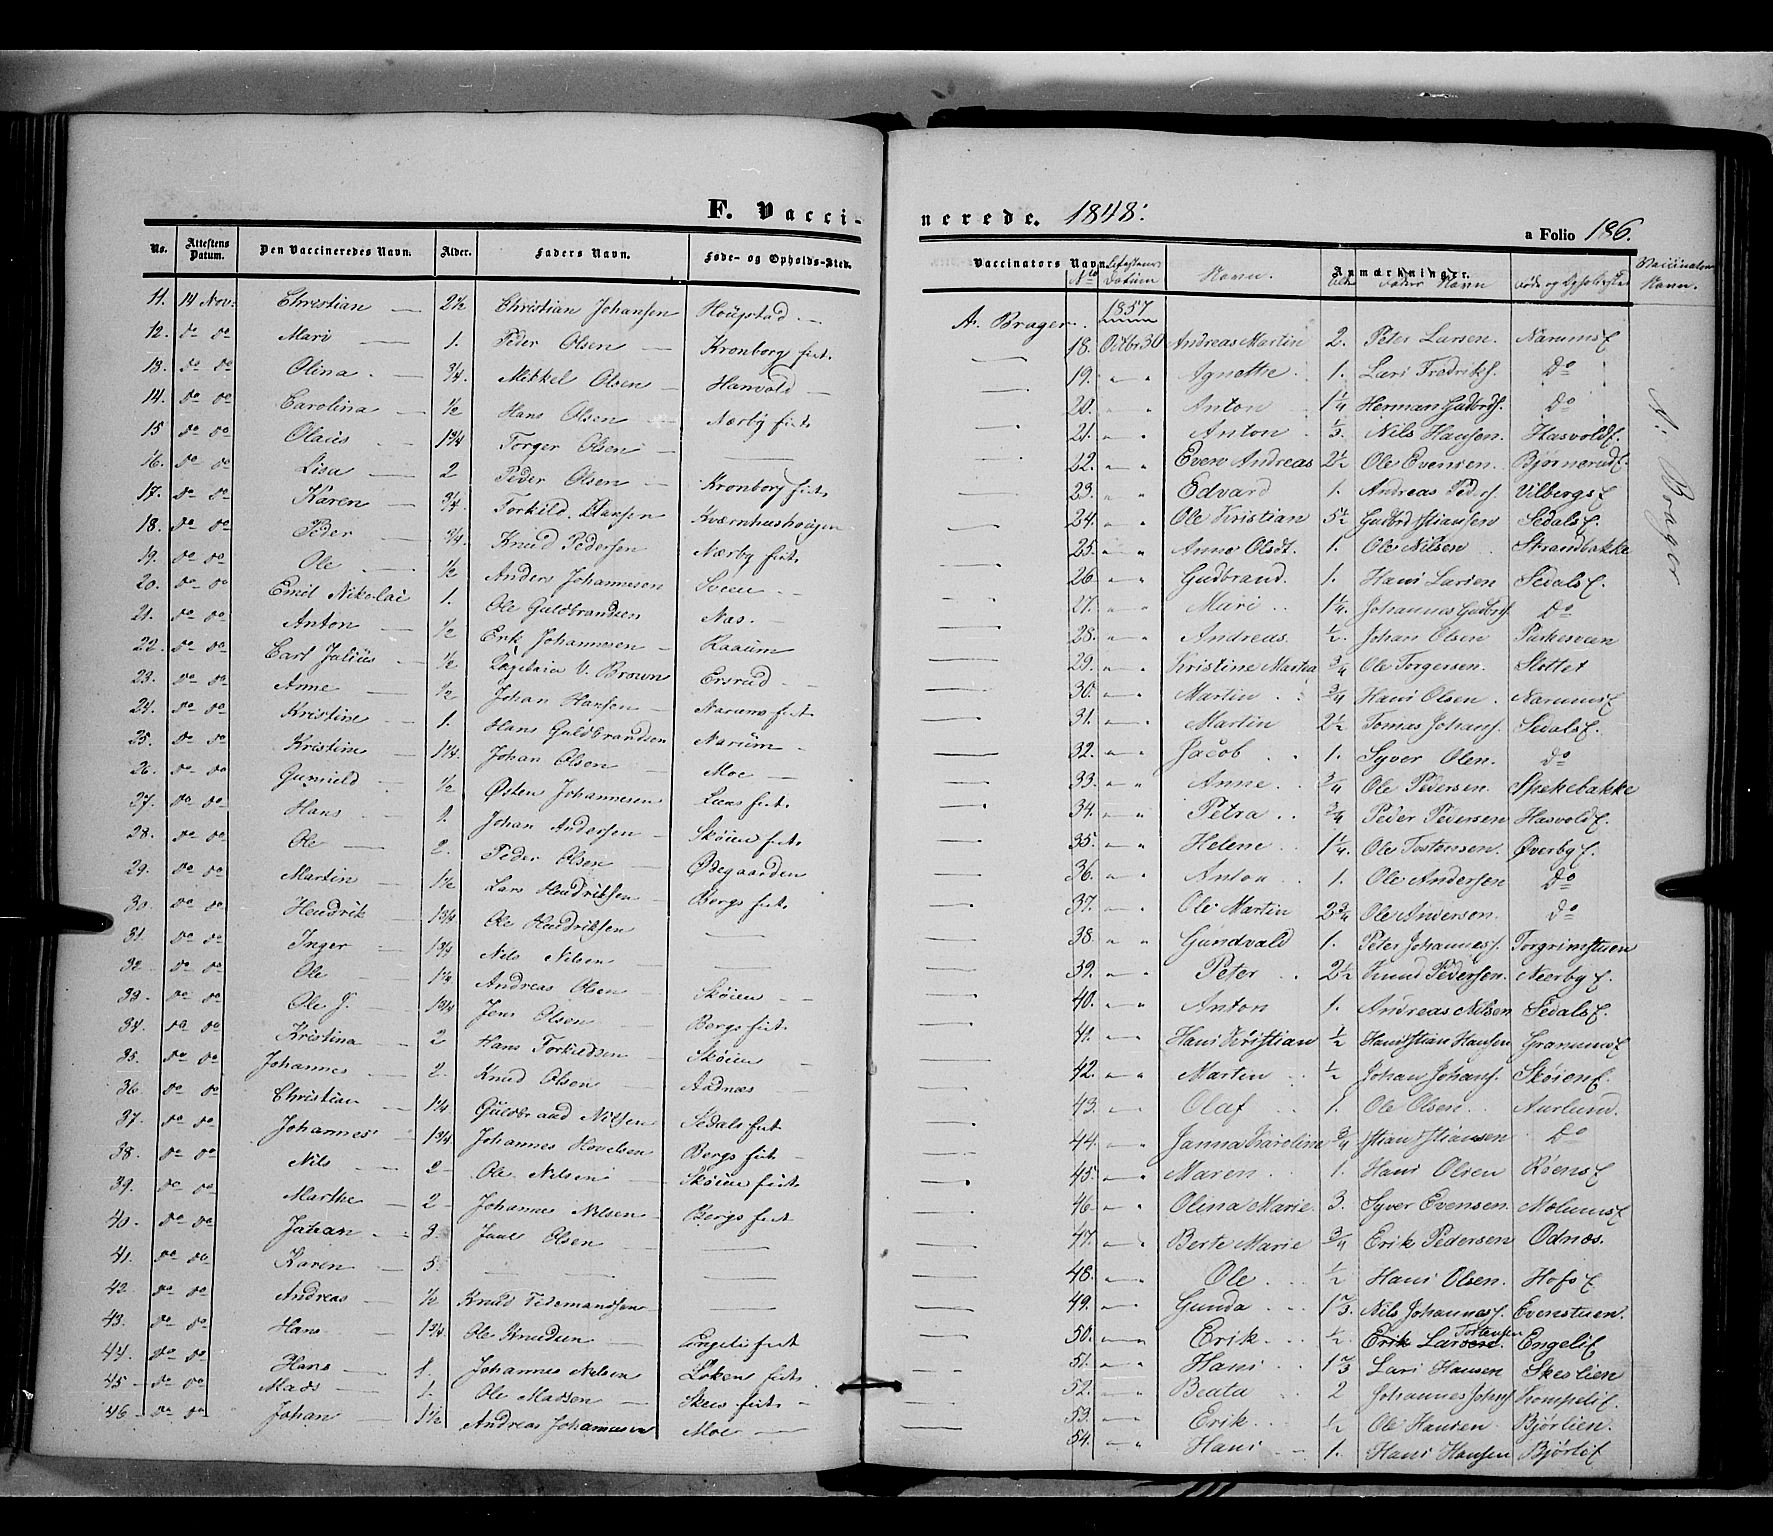 F. Vaccinerede. 1848:
a Folio 186.
No. Attestens Datum. Den Vaccineredes Navn. Alder. Faders Navn. Føde- og Opholds-Sted.
11. 14 Nov: Christian 2½ Christian Johansen Hougstad
12. do do Mari 1. Peder Olsen Kronborg
13. do do Olina 3/4 Mikkel Olsen Hanvold
14. do do Carolina ½ Hans Olsen Nærby
15 do do Olaus 1 3/4 Torger Olsen —
16. do do Lisa 2 Peder Olsen Kronborg
17. do do Karen 3/4 Torkild Hansen Kværnhushougen
18. do do Peder 3/4 Knud Pedersen Nærby
19. do do Ole ½ Anders Johannesen Sveen
20. do do Emil Nikolai 1. Ole Guldbrandsen Næs
21. do do Anton ½ Erik Johannesen Raaum
22. do do Carl Julius ½ V. Brown Ersrud
23. do do Anne ½ Johan Hansen Narums
24. do do Kristine 1. Hans Guldbrandsen Narum
25. do do Kristine 1 1/4 Johan Olsen Moe
26. do do Gunild ½ Østen Johannesen
37. do do Hans 1. Johan Andersen Skøien
28. do do Ole 2. Peder Olsen Ødegaarden
29. do do Martin 1½ Lars Hendriksen Bergs
30. do do Hendrik 1 3/4 Ole Hendriksen —
31. do do Inger 1 3/4 Nils Nilsen —
32. do do Ole Andreas Olsen Skøien
33. do do Ole J. 1 3/4 Jens Olsen Bergs
34. do do Kristina 2 Hans Torkildsen Skøien
35. do do Johannes 2. Knud Olsen Aadnæs
36. do do Christian 1 1/4 Guldbrand Nilsen Sedals
37. do do Johannes 1 3/4 Johannes Hovelsen Bergs
38. do do Nils 2 Ole Nilsen Skøien
39. do do Marthe 2 Johannes Nilsen Bergs
40. do do Johan 3. Juul Olsen —
41. do do Karen 5 — — —
42. do do Andreas ½ Knud Tidemandsen —
43. do do Hans 1 3/4 Ole Knudsen Engeli
44. do do Hans 1 Johannes Nilsen Løken
45 do do Mads 1. Ole Madsen Skees
46 do do Johan 1½ Andreas Johannesen Moe
Vaccinators Navn. Anmærkninger.
No Datum Navn. Alder Faders Navn Vaccinators Navn.
A. Brager. 1857
18. Octbr 30 Andreas Martin 2. Peter Larsen. Narums
19. Agnethe 1. Lars Fredriks. Do
20. Anton 1 1/4 Herman Gudbrds. Do
21. Anton 1/3. Nils Hansen. Hasvold
22. Even Andreas 2½ Ole Evensen. Bjørnerud
23. Edvard 1. Andreas Peders. Vilbergs
24. Ole Kristian 5½ Gudbrd Stiansen Sedals
25. Anne Olsdt. 1. Ole Nilsen Strandbakke
26 Gudbrand. 1. Hans Larsen Sedals
27. Mari 1 1/4. Johannes Gudbrds. Do
28. Andreas ½. Johan Olsen
29. Kristine Martea 3/4 Ole Torgersen. Slottet
30. Martin 3/4 Hans Olsen. Narums
31. Martin 2½ Tomas Johans. Sedals
32. Jacob 1. Syver Olen. Do
33. Anne 3/4 Ole Pedersen. Spekebakke
34. Petra 3/4 Peder Pedersen Hasvold
35. Helene 1 1/4 Ole Tostensen. Øverby
36. Anton 1. Ole Andersen Do
37. Ole Martin 2 3/4 Ole Andersen. Do
38. Gundvald 1. Peter Johannes. Torgrimstuen
39. Peter 2½ Knud Pedersen. Neerby
40. Anton 1. Andreas Nilsen Sedals
41. Hans Kristian ½ Hans Stian Hansen Granums
42. Martin ½ Johan Johans. Skøien
43. Olaf 1. Ole Olsen Aurlund.
44. Janna Karolina 3/4 Stian Stiansen Do
45. Maren 1. Hans Olsen Røens
46 Olina Marie 3. Syver Evensen Molums
47. Berte Marie 3/4 Erik Pedersen Odnæs.
48. Ole ½ Hans Olsen. Hofs
49. Gunda 1 2/3. Nils Johannes. Evenstuen
50. Erik ½ Erik Larsen Tostensen Engeli
51. Hans 1 2/3 Lars Hansen Skeslien
52. Beata 2 Johannes Johans. Kompeli
53. Erik ½ Ole Hansen Bjørlien.
54. Hans 1. Hans Hansen Bjørli
A. Brager